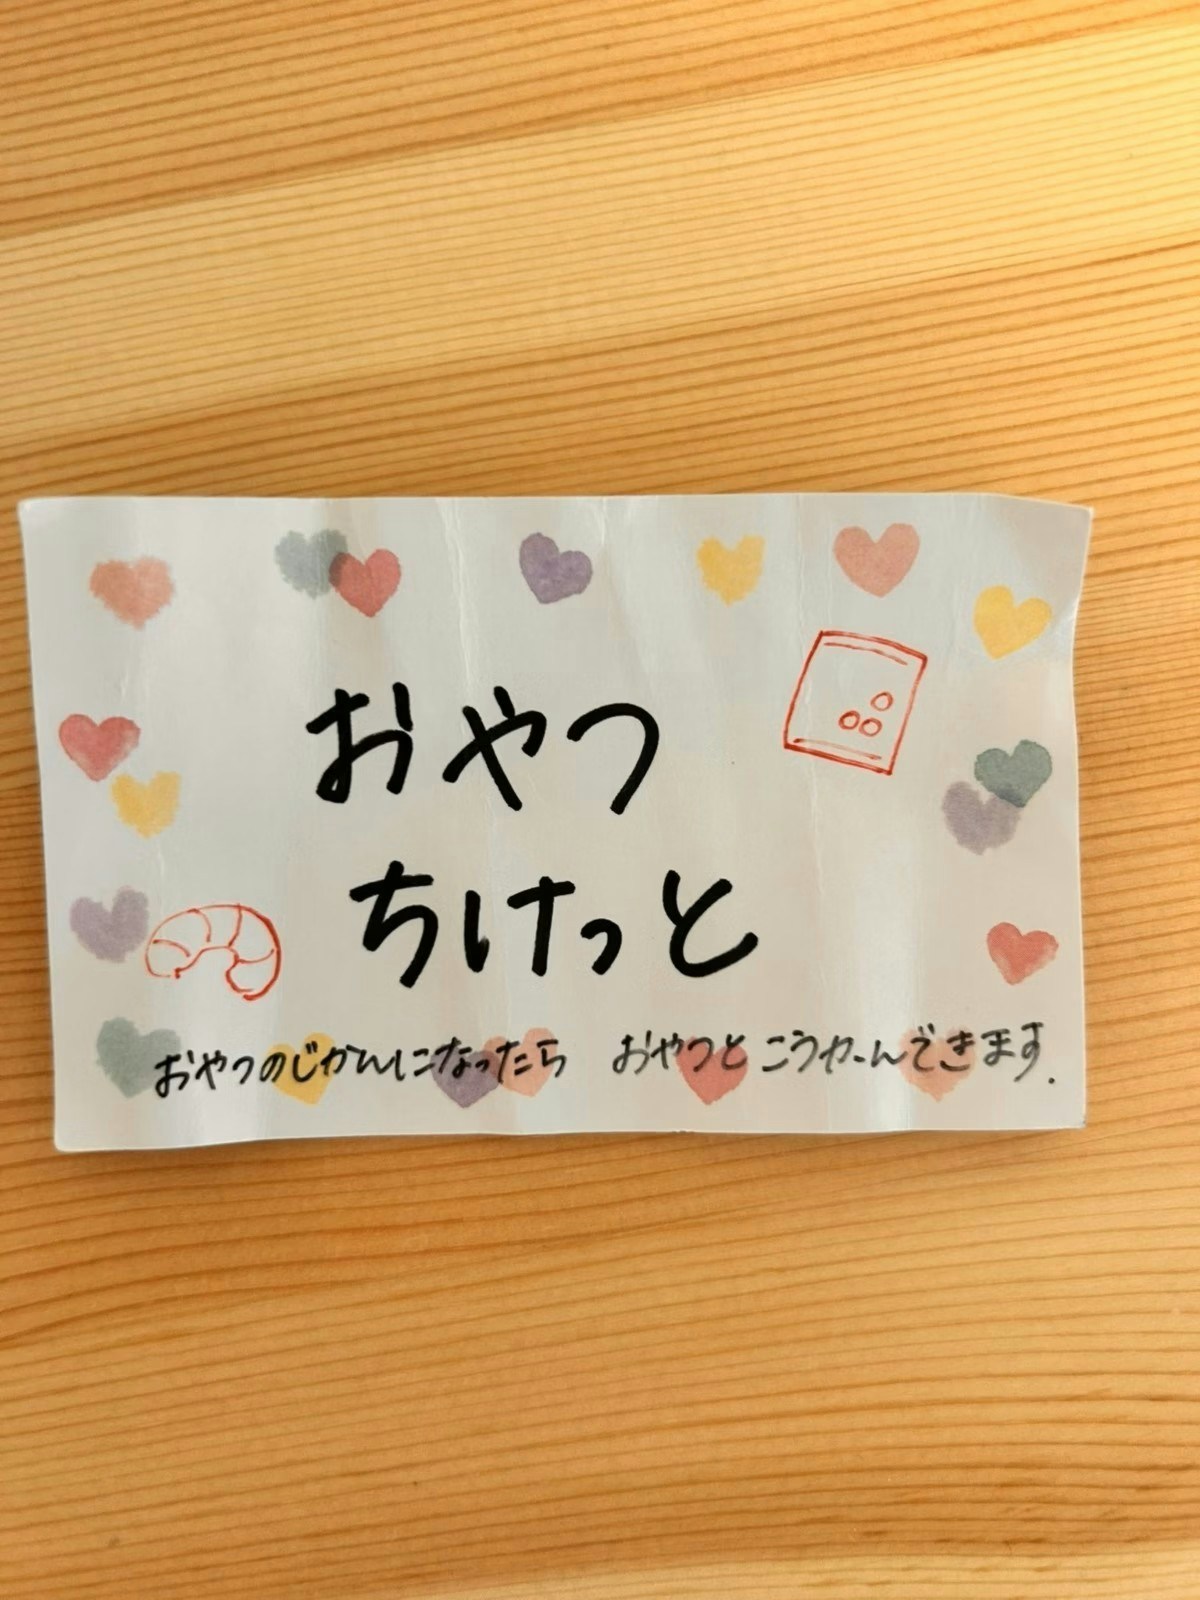 おやつ
ちけっと
おやつのじかんになったら　おやつと こうかんできます.